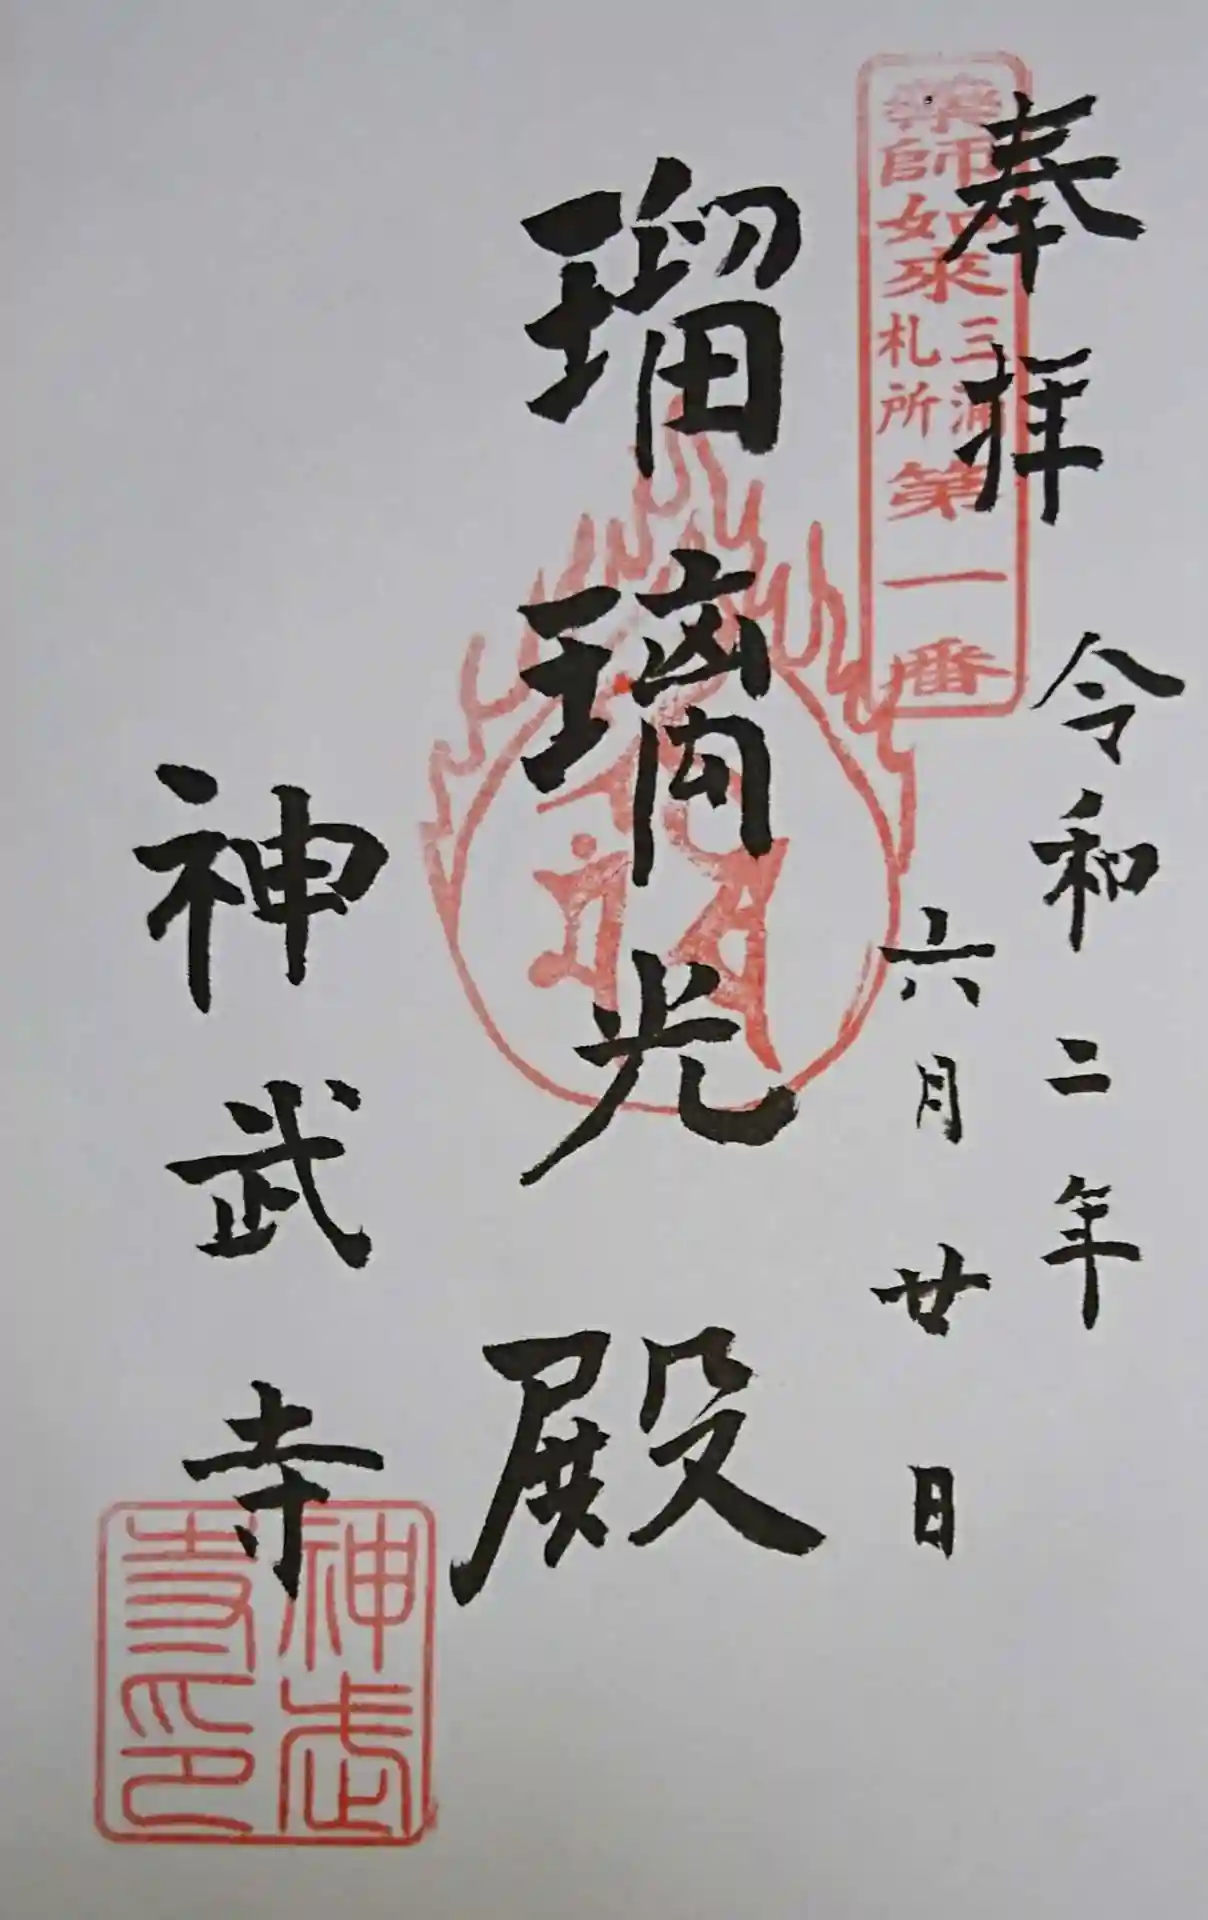 奉拝
令和二年
六月廿日
薬師如来
三浦
札所
第一番
瑠璃光殿
神武寺
神武
寺印